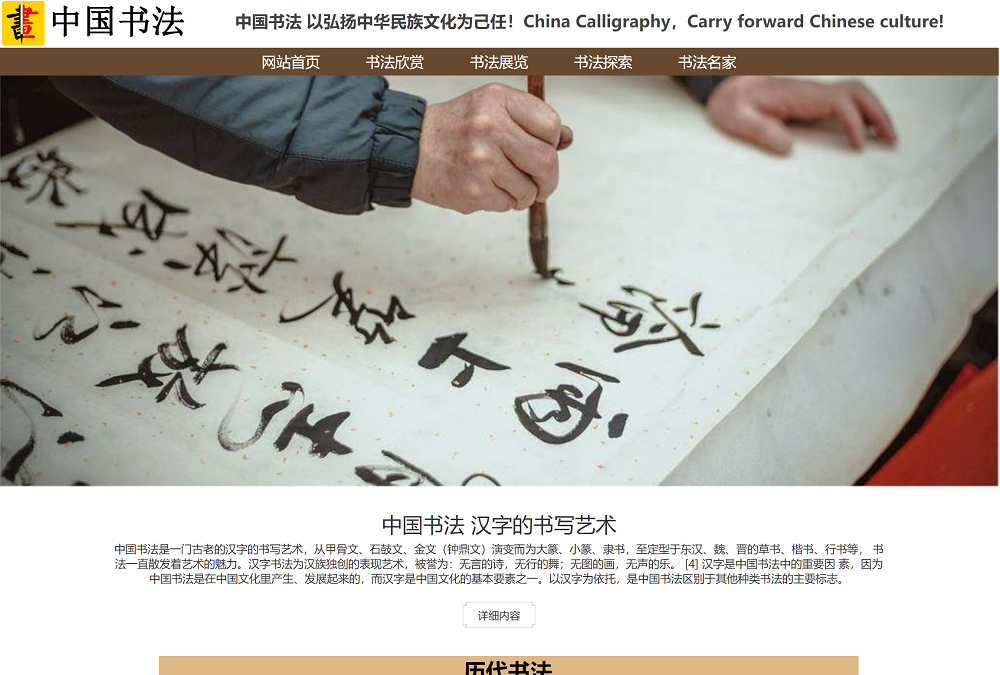 畫 中国书法
中国书法 以弘扬中华民族文化为己任！China Calligraphy，Carry forward Chinese culture!
网站首页 书法欣赏 书法展览 书法探索 书法名家
中国书法 汉字的书写艺术
中国书法是一门古老的汉字的书写艺术，从甲骨文、石鼓文、金文（钟鼎文）演变而为大篆、小篆、隶书，至定型于东汉、魏、晋的草书、楷书、行书等， 书
法一直散发着艺术的魅力。汉字书法为汉族独创的表现艺术，被誉为：无言的诗，无行的舞；无图的画，无声的乐。 [4] 汉字是中国书法中的重要因 素，因为
中国书法是在中国文化里产生、发展起来的，而汉字是中国文化的基本要素之一。以汉字为依托，是中国书法区别于其他种类书法的主要标志。
详细内容
历代书法